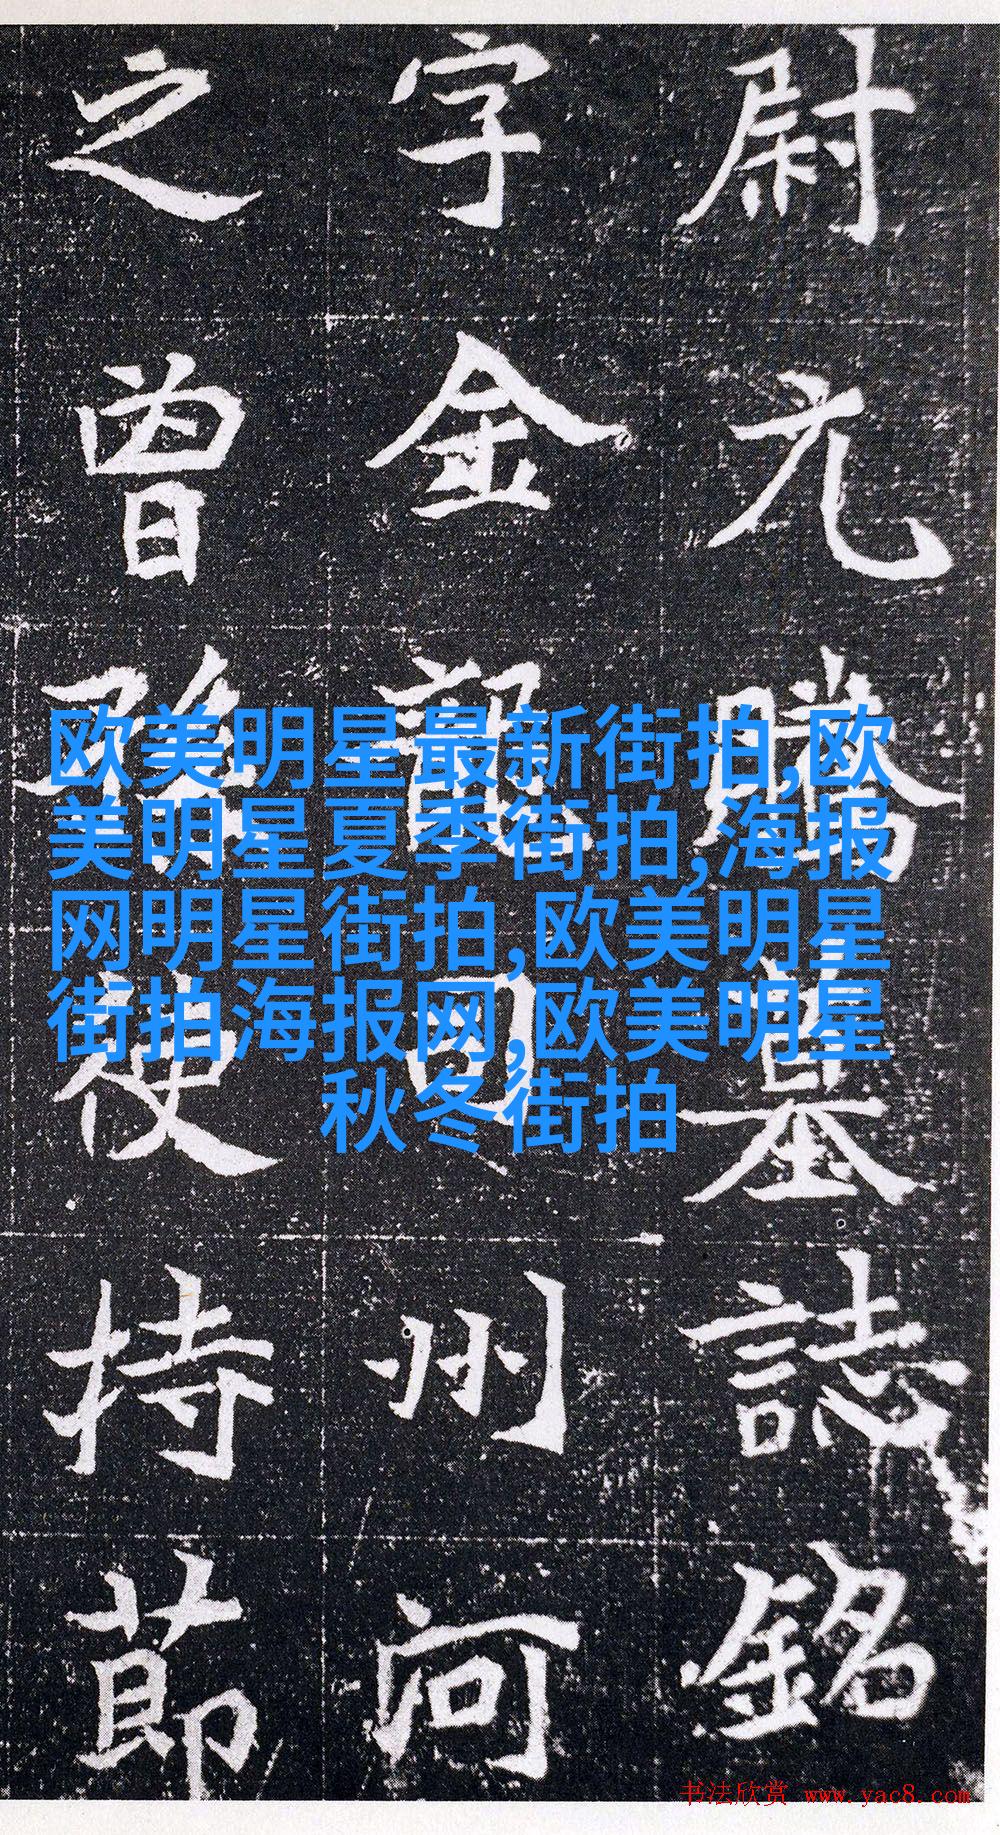 尉元騰墓誌銘
字金龍司州河
之曾孫使持節
欧美明星最新街拍,欧
美明星夏季街拍,海报
网明星街拍,欧美明星
街拍海报网,欧美明星
秋冬街拍
书法欣赏 www.yac8.com